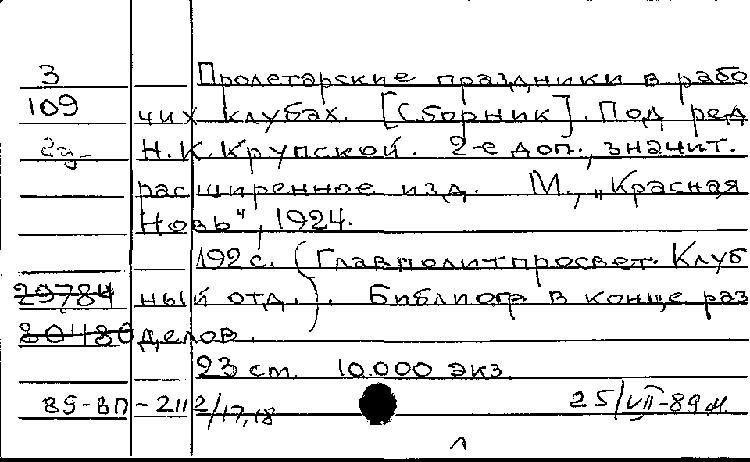 3 Пролетарские праздники в рабо
109 чих клубах. [Сборник]. Под ред
Н.К.Крупской. 2-е доп., значит.
расширенное изд. М., „Красная
Новь", 1924.
192 с. (Главполитпросвет. Клуб
29784 ный отд.). Библиогр в конце раз
80480 делов.
23 см. 10.000 экз.
89-ВП-211 2/17,18 25/VII-89